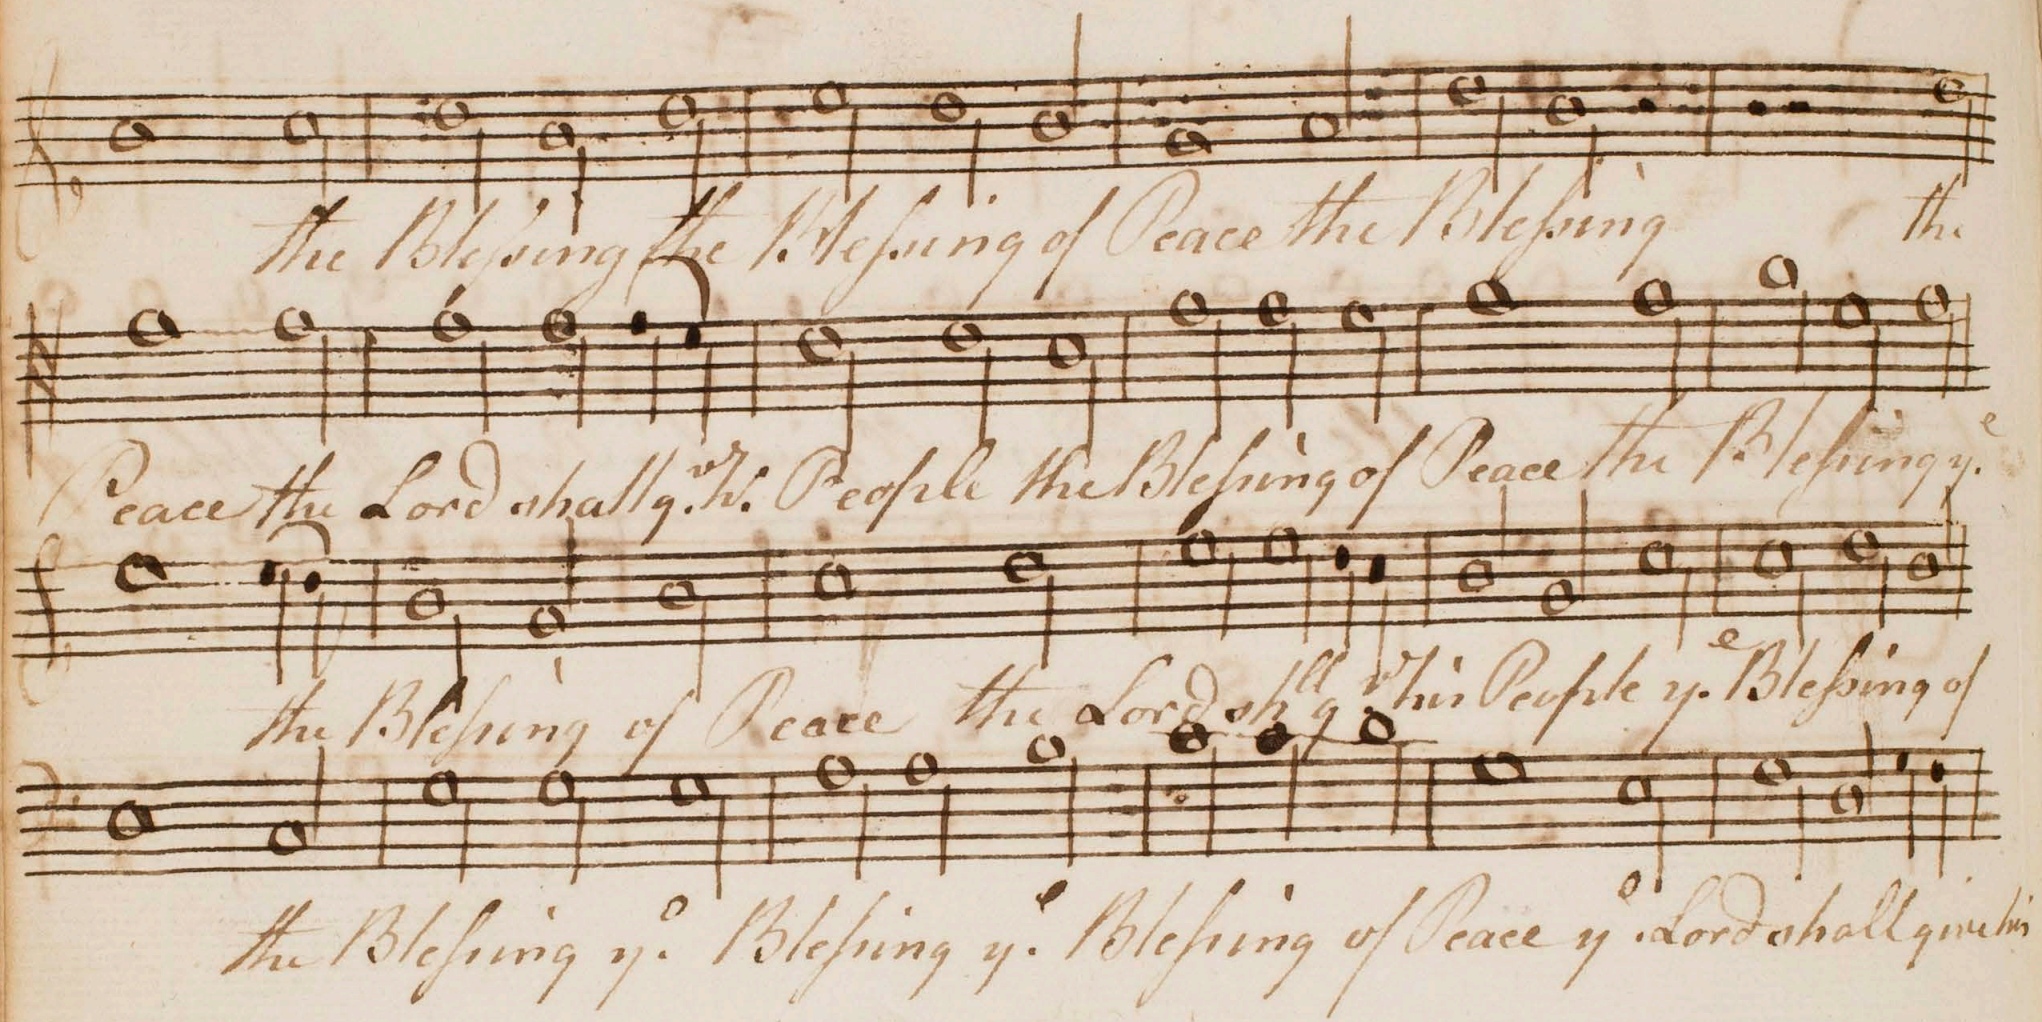 the Bleſsing the Bleſsing of Peace the Bleſsing the
Peace the Lord shall g.ve h.s People the Bleſsing of Peace the Bleſsing y.e
the Bleſsing of Peace the Lord shll g.ve his People y.e Bleſsing of
the Bleſsing y.e Bleſsing y.e Bleſsing of Peace y.e Lord shall give his